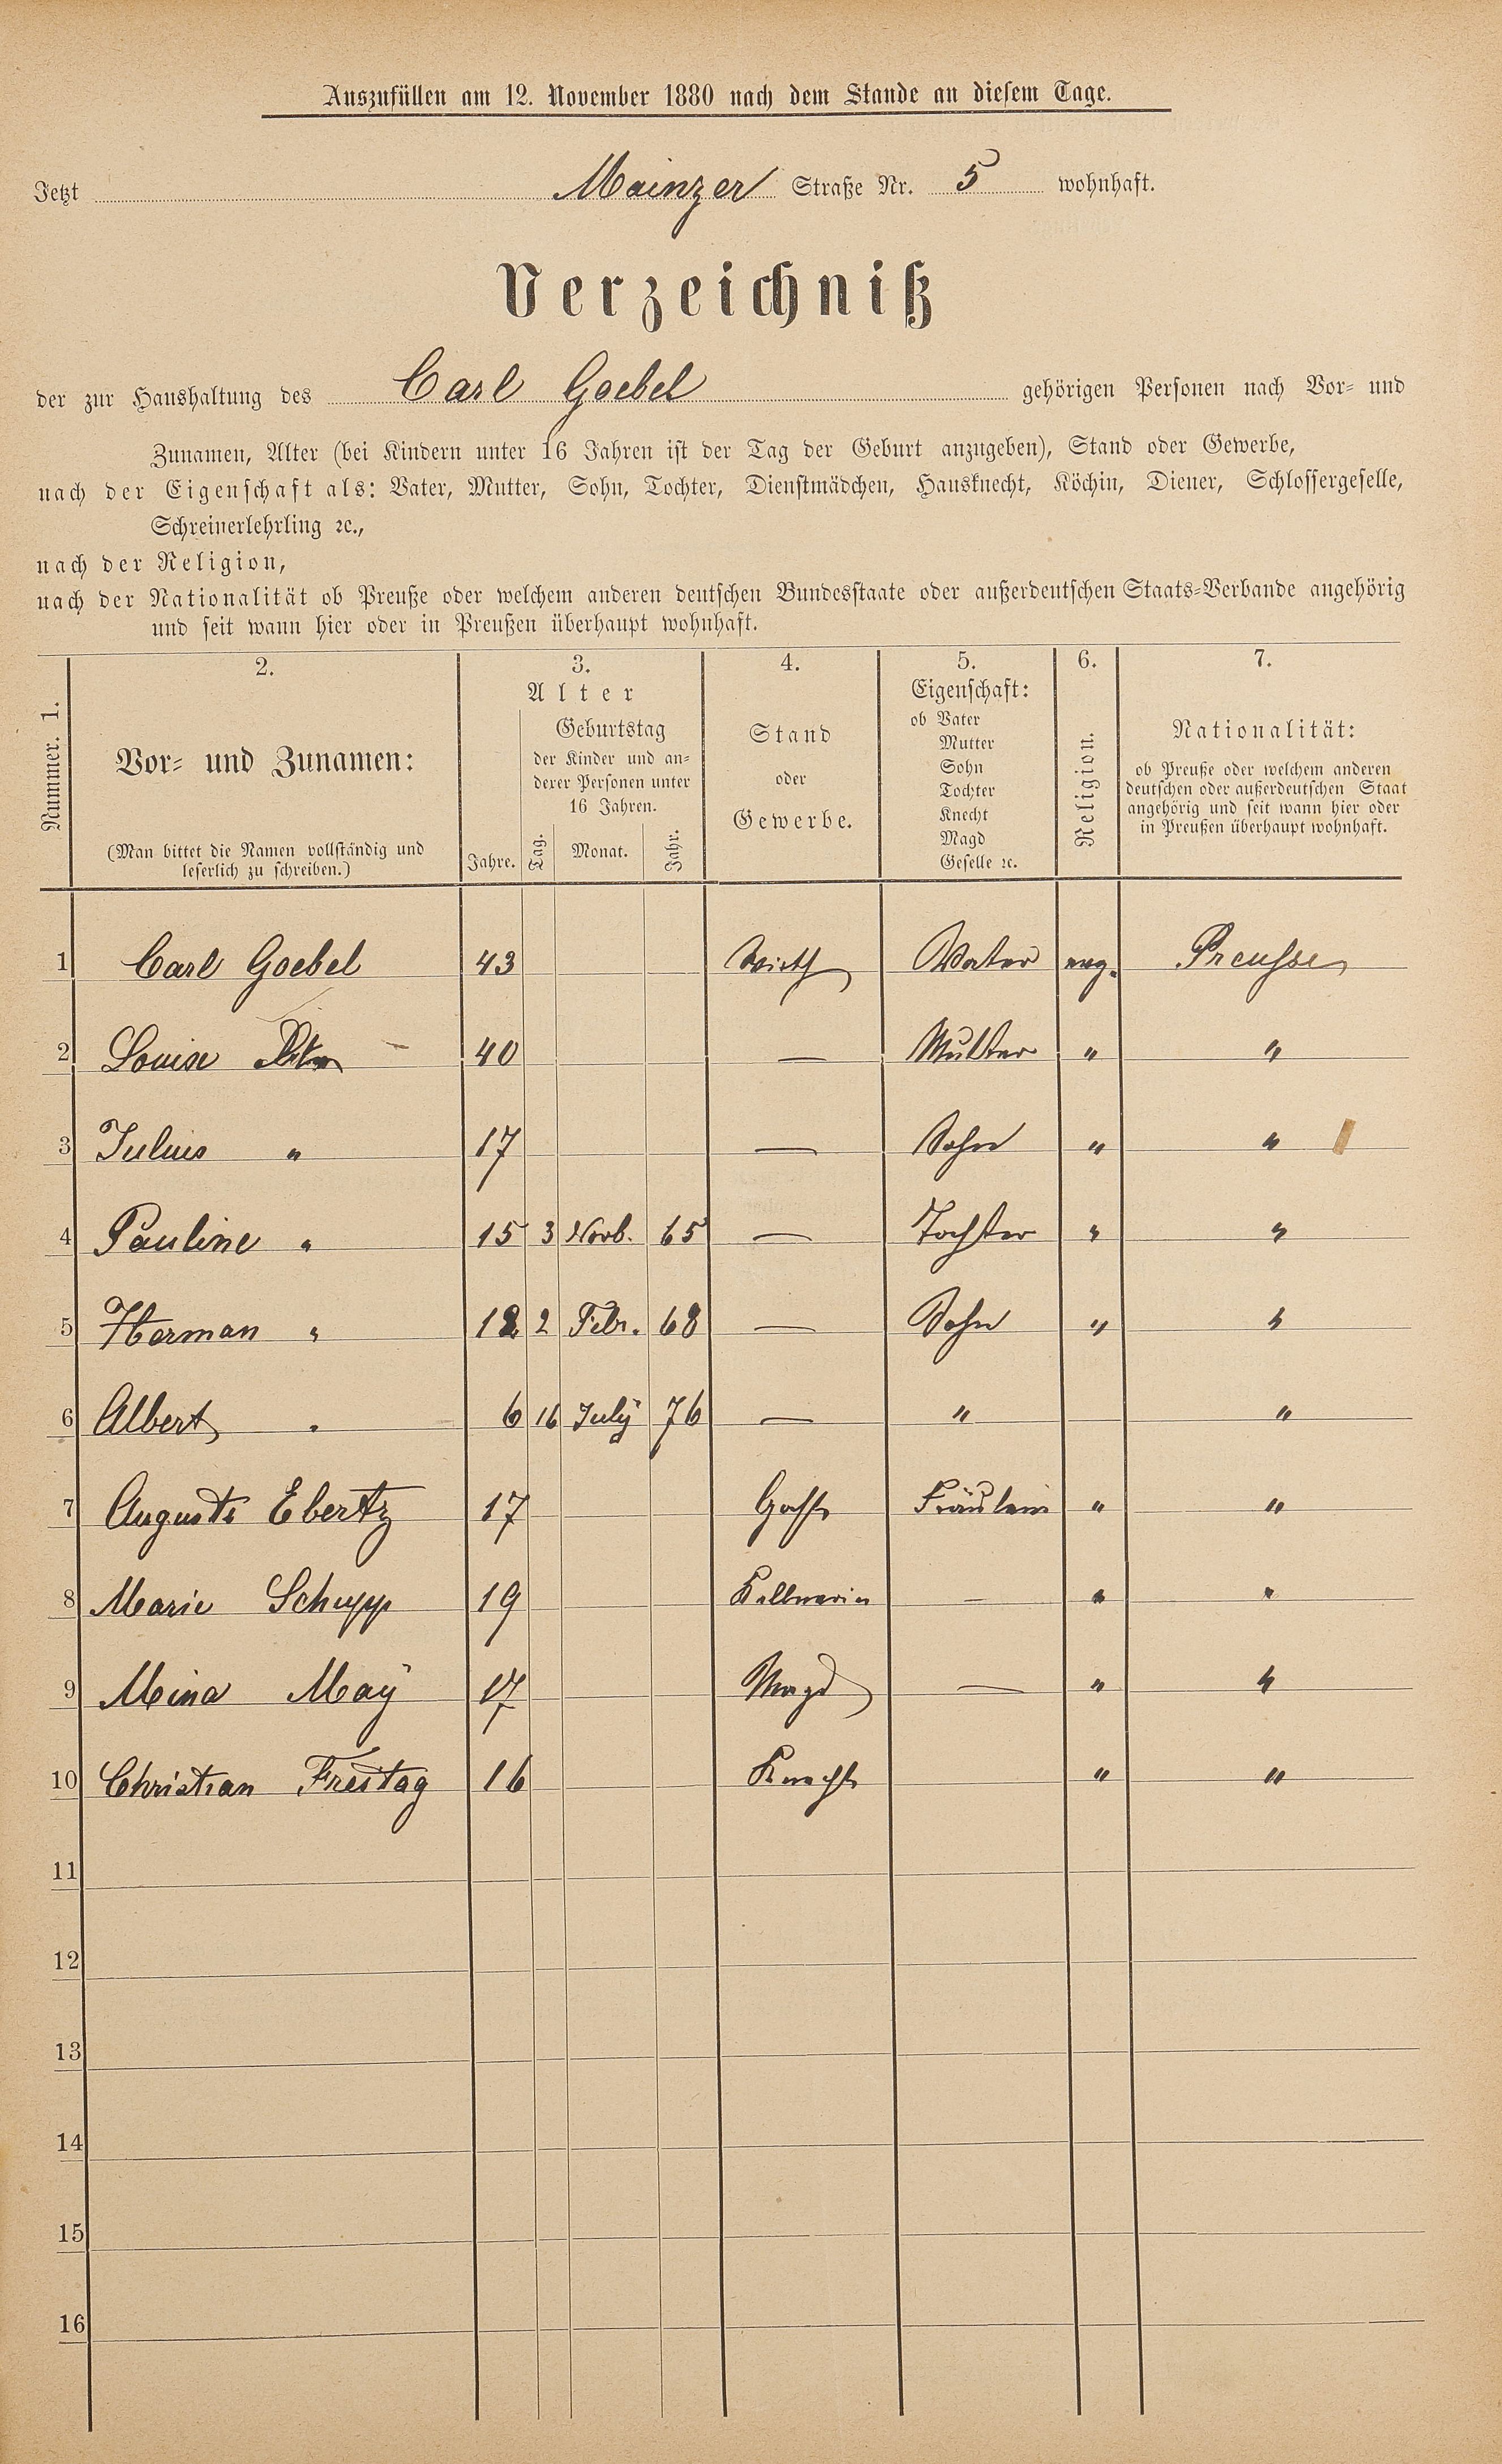 Auszufüllen am 12. November 1880 nach dem Stande an diesem Tage.
Jetzt Mainzer Straße Nr. 5 wohnhaft.
Verzeichniß
der zur Haushaltung des Carl Goebel gehörigen Personen nach Vor- und
Zunamen, Alter (bei Kindern unter 16 Jahren ist der Tag der Geburt anzugeben), Stand oder Gewerbe,
nach der Eigenschaft als: Vater, Mutter, Sohn, Tochter, Dienstmädchen, Hausknecht, Köchin, Diener, Schlossergeselle,
Schreinerlehrling ꝛc.,
nach der Religion,
nach der Nationalität ob Preuße oder welchem anderen deutschen Bundesstaate oder außerdeutschen Staats-Verbande angehörig
und seit wann hier oder in Preußen überhaupt wohnhaft.
Nummer. 1.
2.
Vor- und Zunamen:
(Man bittet die Namen vollständig und
leserlich zu schreiben.)
3.
Alter
Jahre.
Geburtstag
der Kinder und an-
derer Personen unter
16 Jahren.
Tag. Monat. Jahr.
4.
Stand
oder
Gewerbe.
5.
Eigenschaft:
ob Vater
Mutter
Sohn
Tochter
Knecht
Magd
Geselle ꝛc.
6.
Religion.
7.
Nationalität:
ob Preuße oder welchem anderen
deutschen oder außerdeutschen Staat
angehörig und seit wann hier oder
in Preußen überhaupt wohnhaft.
1 Carl Goebel 43 Wirth Vater evg. Preusse
2 Louise 40 — Mutter " "
3 Julius " 17 — Sohn " "
4 Pauline " 15 3 Novb. 65 — Tochter " "
5 Herman " 12 2 Febr. 68 — Sohn " "
6 Albert " 6 16 July 76 — " "
7 Auguste Ebertz 17 Fräulein " "
8 Marie Schupp 19 Kellnerin — " "
9 Mina Maÿ 17 Magd — " "
10 Christian Freitag 16 Knecht " "
11
12
13
14
15
16